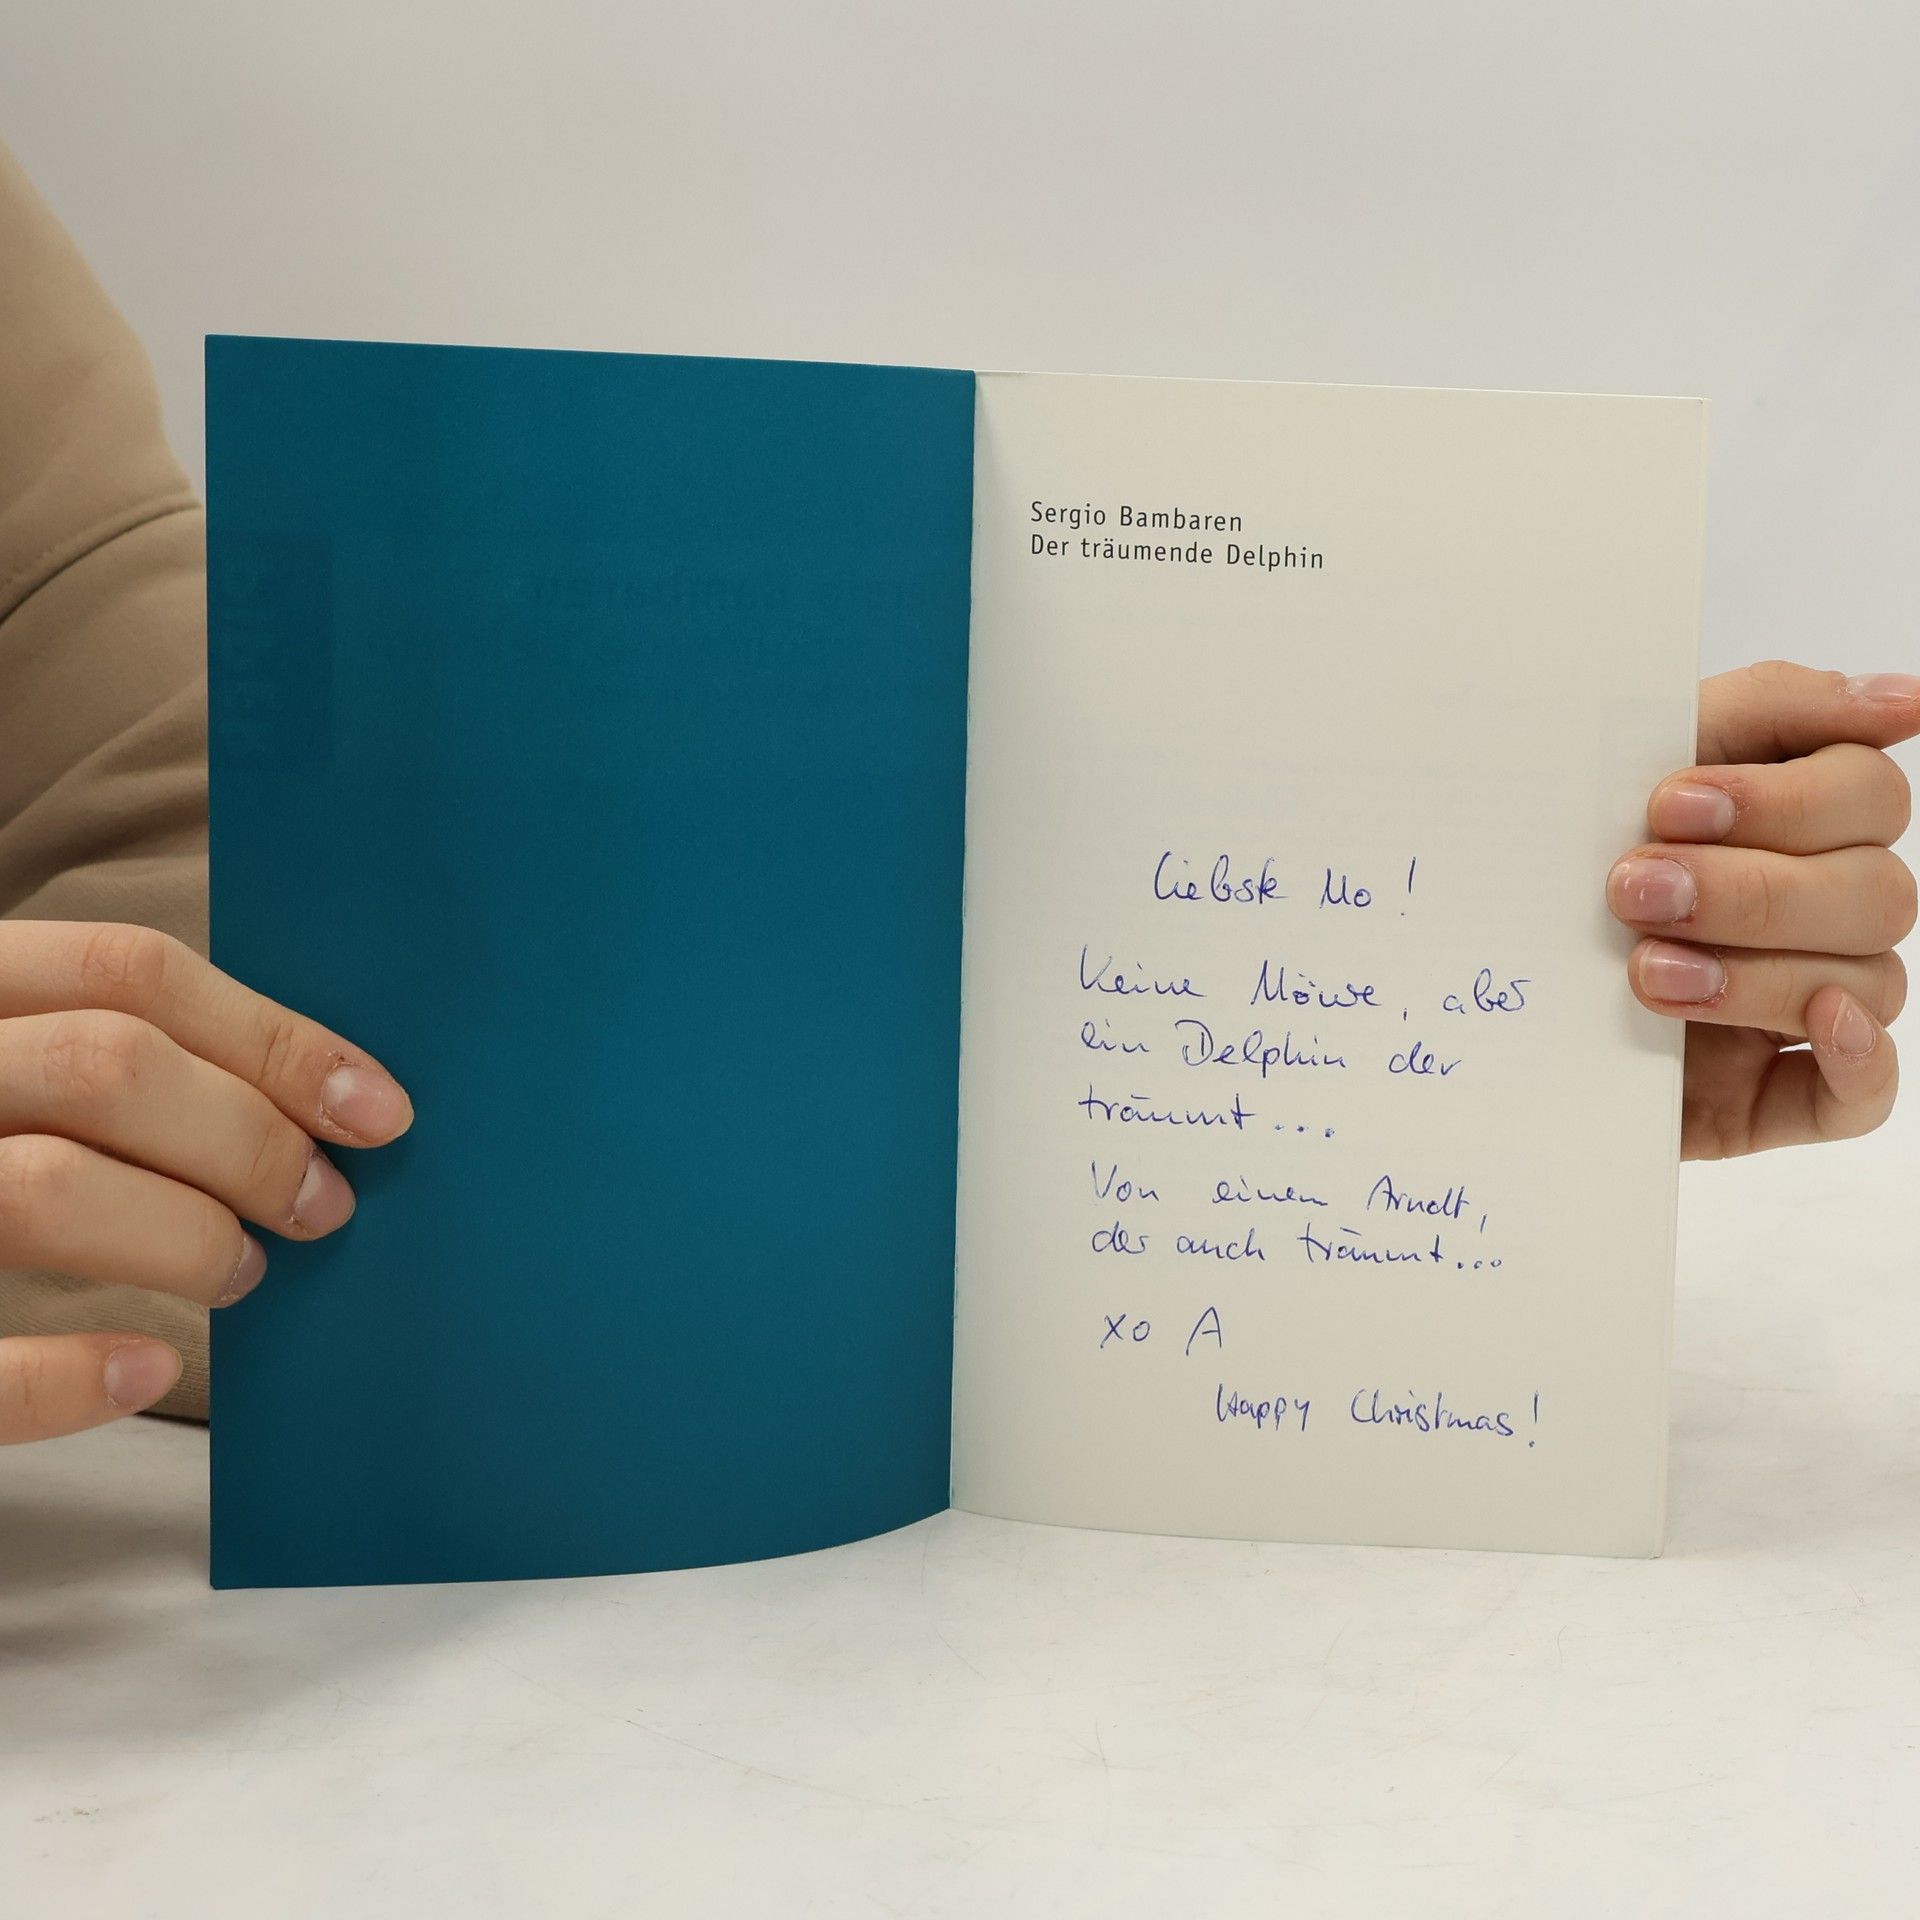 Sergio Bambaren
Der träumende Delphin
Liebste Mo !
Keine Möwe, aber
ein Delphin der
träumt ...
Von einem Arndt,
der auch träumt...
xo A
Happy Christmas!